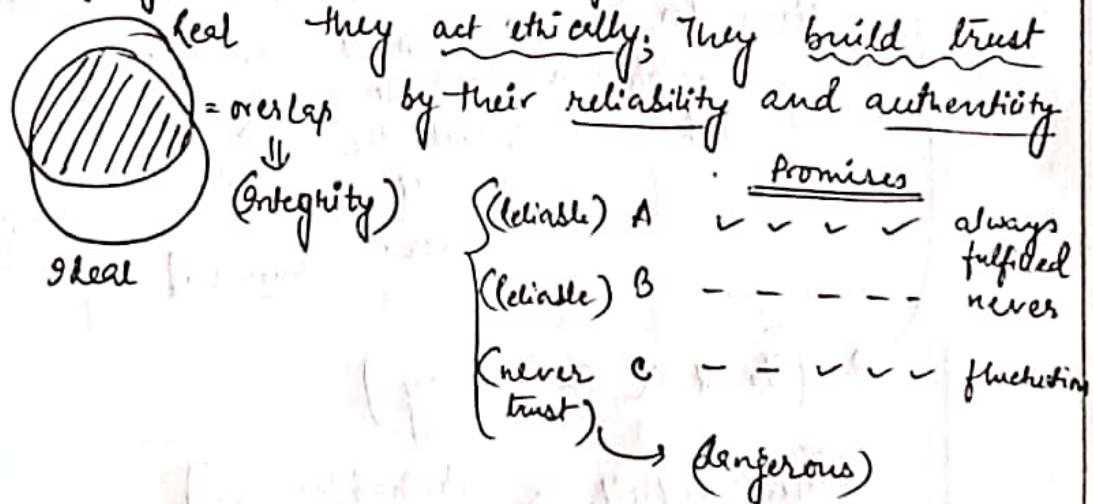 Real they act ethically; They build trust
= overlap by their reliability and authenticity
⇓
(Integrity)
Ideal
Promises
(reliable) A ✓ ✓ ✓ ✓ always fulfilled
(reliable) B - - - - - never
(never trust) C - - ✓ ✓ ✓ fluctuation
→ (dangerous)